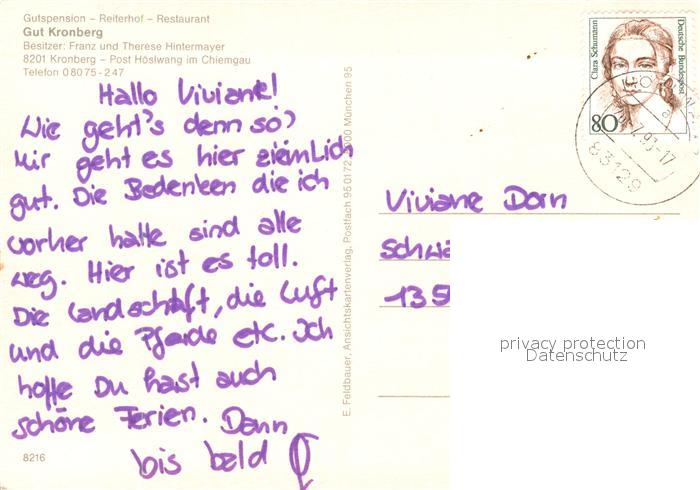 Gutspension – Reiterhof – Restaurant
Gut Kronberg
Besitzer: Franz und Therese Hintermayer
8201 Kronberg – Post Höslwang im Chiemgau
Telefon 0 80 75 - 2 47
Hallo Viviane!
Wie geht's denn so?
Mir geht es hier ziemlich
gut. Die Bedenken die ich
vorher hatte sind alle
weg. Hier ist es toll.
Die Landschaft, die Luft
und die Pferde etc. Ich
hoffe Du hast auch
schöne Ferien. Dann
bis bald
8216
E. Feldbauer, Ansichtskartenverlag, Postfach 95 01 72, 8000 München 95
Clara Schumann
Deutsche Bundespost
80
83129
Viviane Dorn
Schwä
135
privacy protection
Datenschutz